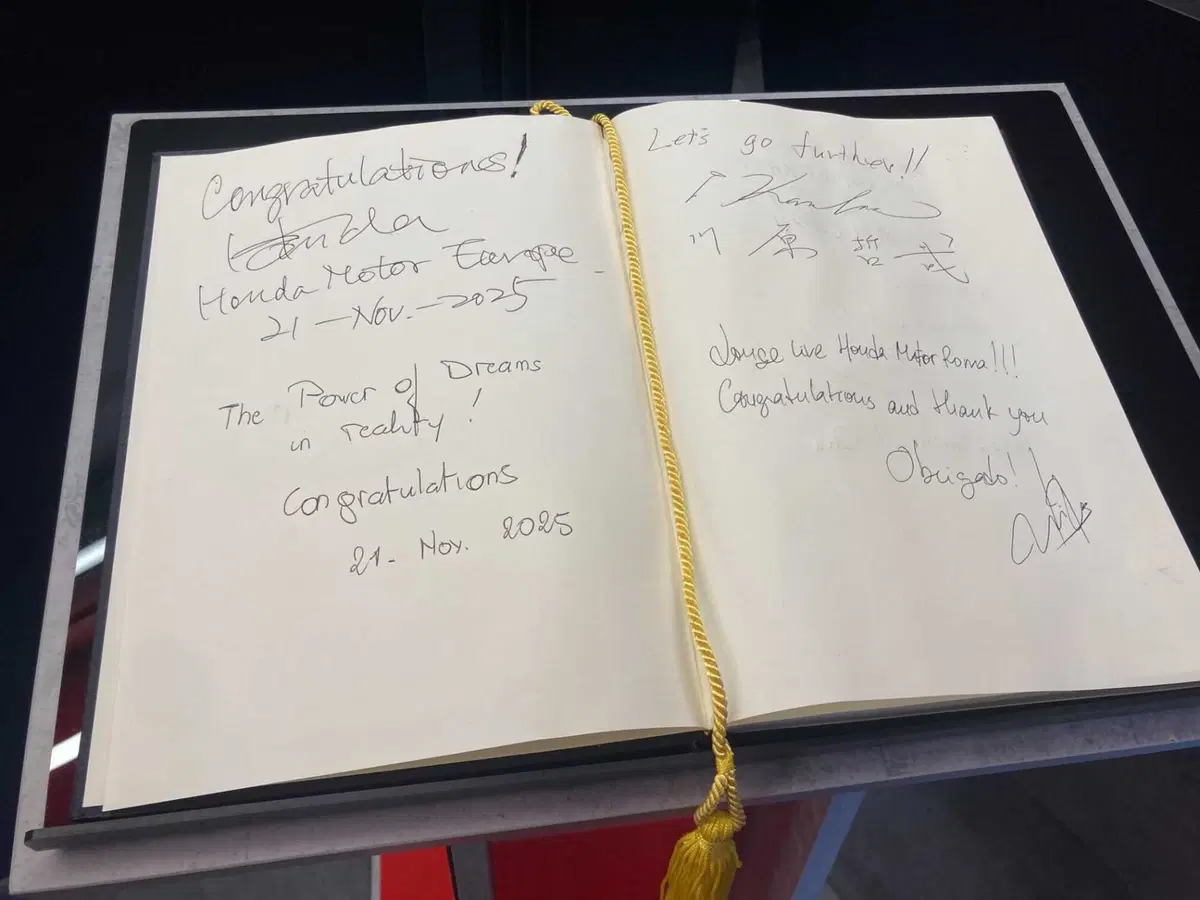 Congratulationes!
Honda Motor Europe
21-Nov.-2025
The Power of Dreams
in reality!
Congratulations
21- Nov. 2025
Let's go further!!
川原哲
live Honda Motor Roma!!!
Congratulations and thank you
Obrigado!